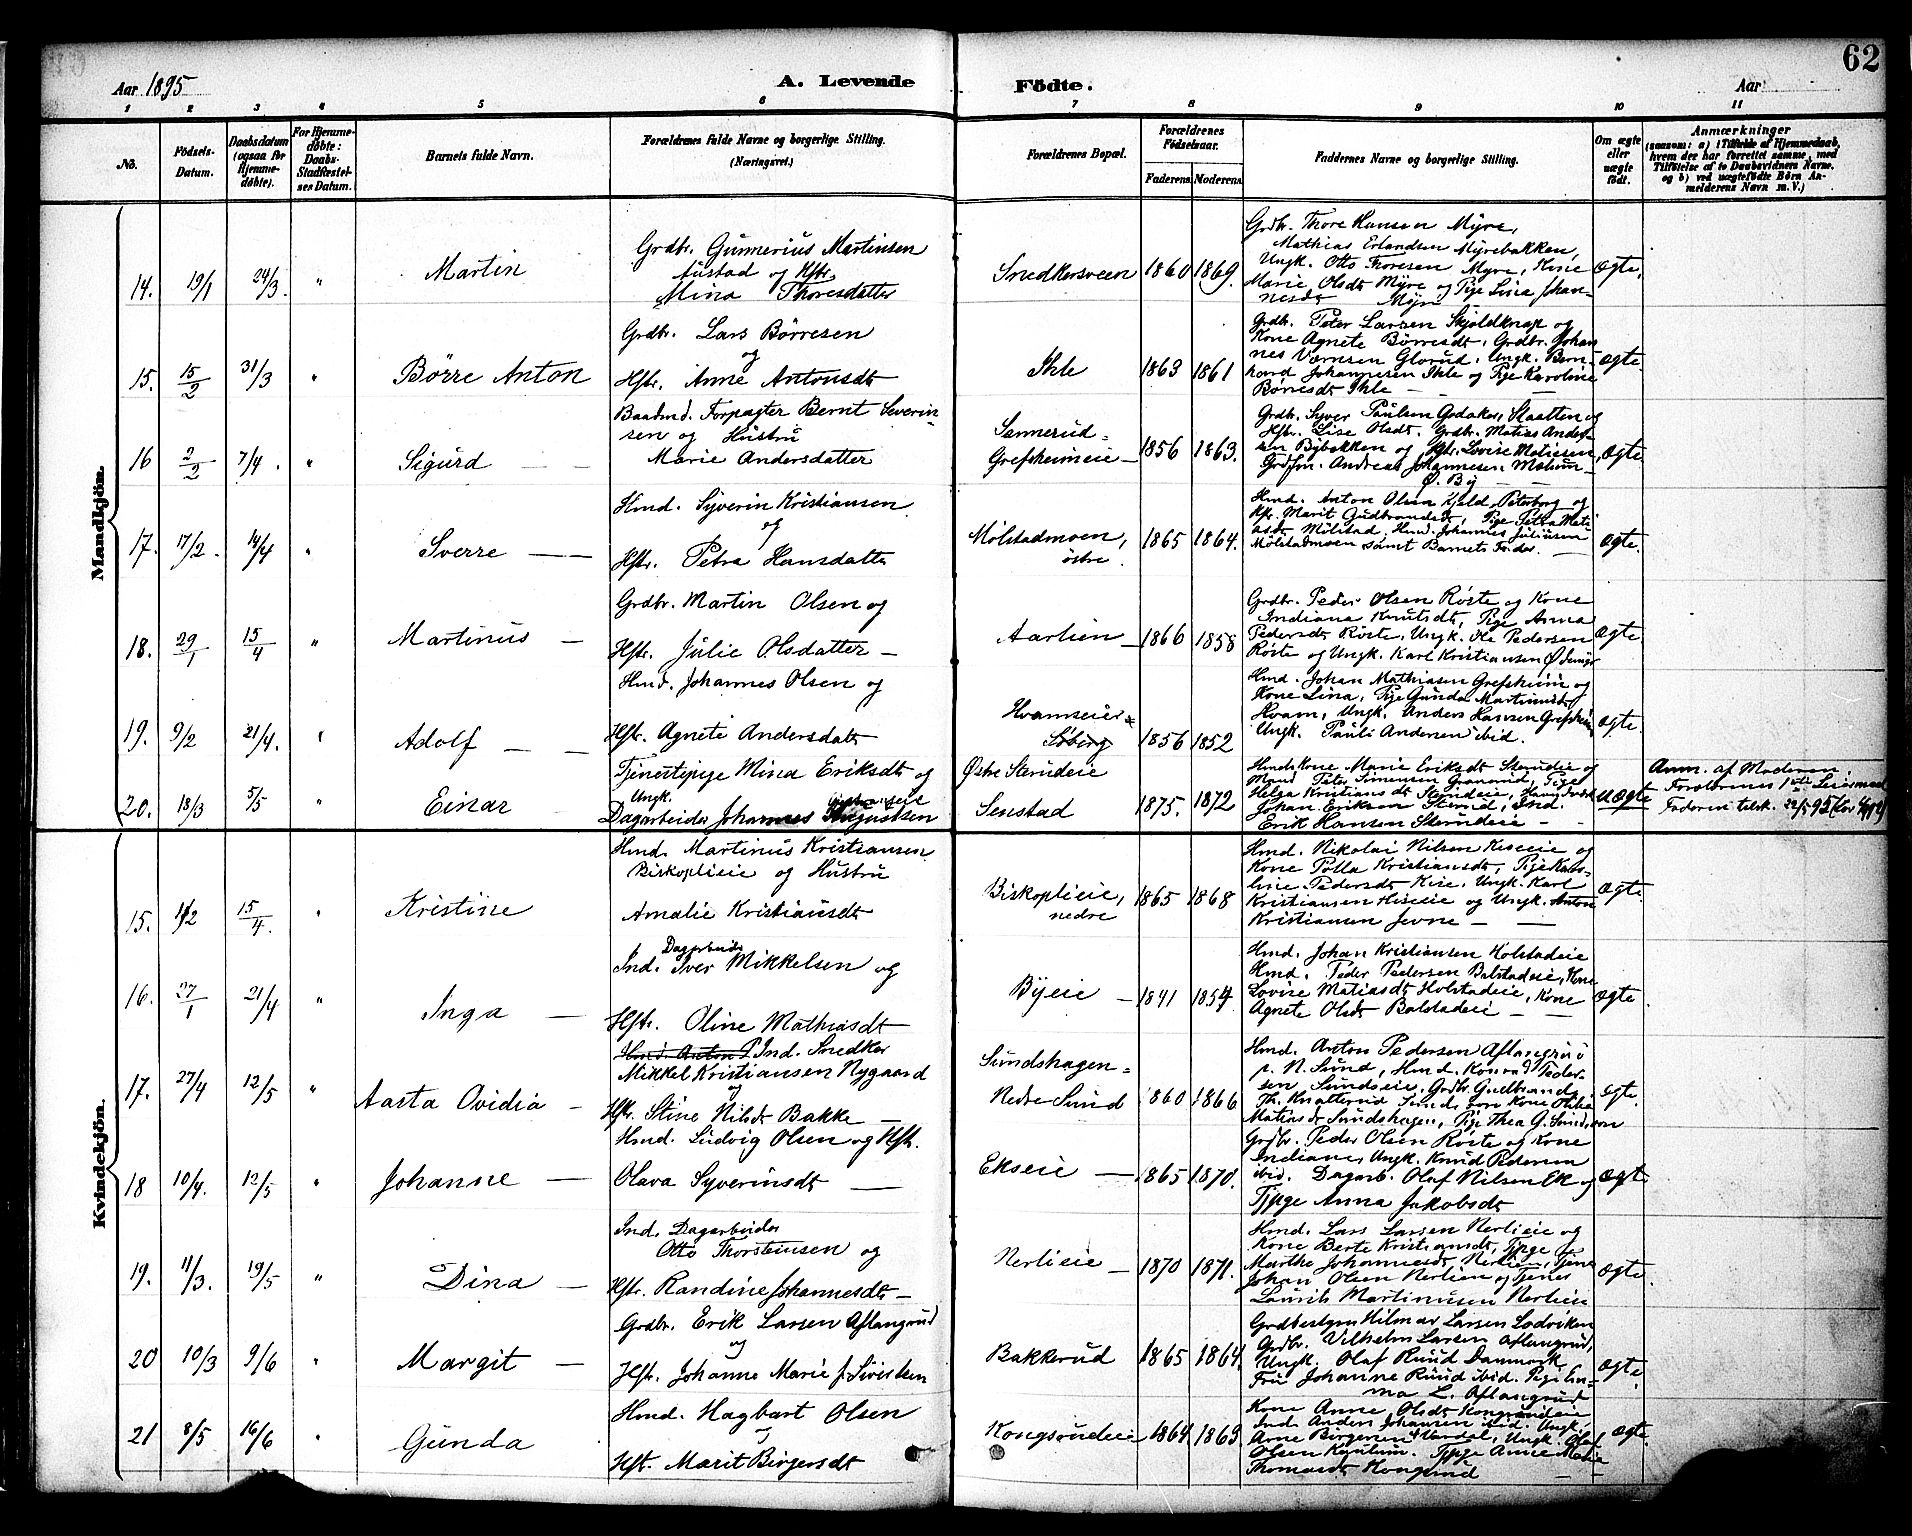 62
Aar 1895
A. Levende
Födte.
Aar
1 2 3 4 5 6 7 8 9 10 11
No.
Födsels-
Datum.
Daabsdatum
(ogsaa for
Hjemme-
døbte).
For Hjemme-
døbte:
Daabs-
Stadfæstel-
ses Datum.
Barnets fulde Navn.
Forældrenes fulde Navne og borgerlige Stilling.
(Næringsvei.)
Forældrenes Bopæl.
Forældrenes
Födselsaar.
Faderens. Moderens.
Faddernes Navne og borgerlig Stilling.
Om ægte
eller
uægte
født.
Anmærkninger
(saasom: a) i Tilfælde af Hjemmedaab,
hvem der har forrettet samme, med
Tilföielse af to Daabsvidners Navne,
og b) ved uægtefödte Börn An-
melderens Navn m. V.)
Mandkjön.
14. 19/1 24/3. " Martin
Grdbr. Gunnerius Martinsen
Austad og Hstr.
Mina Thoresdatter
Snedkersveen 1860 1869.
Grdbr. Thore Hansen Myre,
Mathias Erlandsen Myrebakken,
Ungk. Otto Thoresen Myre, Kone
Marie Olsdt Myre og Pige Lina Johan-
nesdt Myre
Ægte.
15. 15/2 31/3 " Börre Anton
Grdbr. Lars Börresen
og
Hstr. Anne Antonsdt
Ihle 1863 1861
Grdbr. Peter Larsen Skjoldknap og
Kone Agnete Börresdt, Grdbr. Johan
nes Værnsen Glorud, Ungk. Bern-
hard Johannesen Ihle og Pige Karoline
Börresdt Ihle —
Ægte.
16 2/2 7/4. " Sigurd — —
Baadmd. Forpagter Bernt Severin-
sen og Hustru
Marie Andersdatter
Sennerud-
Grefsheimeie — 1856 1863.
Grdbr. Syver Paulsen Godaker, Slaatten og
Hstr. Lise Olsdt. Grdbr. Matias Ander-
sen Bybakken og Hstr. Lovise Matiesen,
Andreas Johannesen
Ö. By — —
Ægte.
17. 17/2. 14/4 " Sverre — —
Hmd. Syverin Kristiansen
og
Hstr. Petra Hansdatter
Mölstadmoen,
östre. 1865 1864.
Hmd. Anton Olsen Kjeld Peterborg og
Hstr. Marit Gudbrandsdt, Pige Petra Mati-
asdt Mölstad, Hmd. Johannes Juliusen
Mölstadmoen samt Barnets Fader. —
Ægte.
18. 29/1 15/4 " Martinus —
Grdbr. Martin Olsen og
Hstr. Julie Olsdatter —
Aarlien — 1866 1858
Grdbr. Peder Olsen Röste og Kone
Indiana Knutsdt, Pige Anna
Pedersdt Röste, Ungk. Ole Pedersen
Röste og Ungk. Karl Kristiansen Ödemyr
Ægte.
19. 9/2 21/4. " Adolf — —
Hmd. Johannes Olsen og
Hstr. Agnete Andersdatr
Hvamseier
Söberg 1856 1852
Hmd. Johan Mathiasen Grefsheim og
Kone Lina, Pige Gunda Martinusdt
Hvam, Ungk. Anders Hansen Grefsheim
Ungk. Pauli Andersen ibid.
Ægte.
20. 18/3 5/5 " Einar —
Tjenestepige Mina Eriksdtr og
Ungk.
Dagarbeider Johannes Augustsen
Östre Sterudeie
Senstad 1875. 1872
Hmdskone Marie Eriksdt Sterudeie og
Mand Peter Simensen Granerud, Pige
Helga Kristiansdt Sterudeie,
Johan Eriksen Sterud, Ind.
Erik Hansen Sterudeie —
Uægte
Anm. af Moderen
Forældrenes 1ste Leiermaal
Faderen tilst. 22/5 95
Kvindekjön.
15. 1/2 15/4. " Kristine
Hmd. Martinus Kristiansen
Biskoplieie og Hustru
Amalie Kristiansdtr
Biskoplieie,
nedre 1865 1868
Hmd. Nikolai Nilsen Kiseeie og
Kone Polla Kristiansdt, Pige Karo-
line Pedersdt Kise, Ungk. Karl
Kristiansen Kiseeie og Ungk. Anton
Kristiansen Jevne — —
Ægte.
16. 27/1 21/4 " Inga —
Dagarbeider
Ind. Iver Mikkelsen og
Hstr. Oline Mathiasdt
Byeie — 1841 1854
Hmd. Johan Kristiansen Holstadeie
Hmd. Peder Pedersen Balstadeie, Kone
Lovise Matiasdt Holstadeie, Kone
Agnete Olsdt Balstadeie — —
Ægte
17. 27/4 12/5 " Aasta Ovidia —
Hmd. Anton P. Ind. Snedker
Mikkel Kristiansen Nygaard
og
Hstr. Stine Nilsdt Bakke —
Sundshagen-
Nedre Sund 1860 1866
Hmd. Anton Pedersen Aflangrud
p. N. Sund, Hmd. Konrad Peder-
sen Sundseie, Grdbr. Gudbrand
Th. Knatterud Sund, Kone Oliba
Matiasdt Sundshagen, Pige Thea G. Sund
Ægte.
18 10/4. 12/5 " Johanne —
Hmd. Ludvig Olsen og Hstr.
Olava Syverinsdt —
Ekseie — 1865 1870.
Grdbr. Peder Olsen Röste og Kone
Indiane, Ungk. Knud Pedersen
ibid. Dagarb. Olaf Nilsen Ek og
Tjpige Anna Jakobsdt
Ægt
19. 11/3. 19/5 " Dina —
Ind. Dagarbeider
Otto Thorsteinsen og
Hstr. Randine Johannesdtr —
Nerlieie — 1870 1871.
Hmd. Lars Larsen Nerlieie og
Kone Berte Kristiansdt, Tjpige
Marthe Johannesdt Nerlien, Tjene
Johan Olsen Nerlien og Tjenes
Laurits Martinusen Nerlien
Ægte.
20 10/3 9/6 " Margit —
Grdbr. Erik Larsen Aflangrud
og
Hstr. Johanne Marie f. Sivertsen
Bakkerud 1865 1864.
Grdbestyrer Hilmar Larsen Lodviken
Grdbr. Vilhelm Larsen Aflangrud,
Ungk. Olaf Ruud Danmark
Fru Johanne Ruud ibid. Pige Em-
ma L. Aflangrud
Ægte.
21 8/5 16/6 " Gunda
Hmd. Hagbart Olsen
og
Hstr. Marit Birgersdt
Kongsrudeie — 1864 1863
Kone Anne Olsdt Kongsrudeie
Ind. Anders Johansen ibid. Ungk.
Arne Birgersen Vardal, Ungk. Olaf
Olsen Tjpige Anne Marie
Thomasdt Kongsrud — —
Ægte.